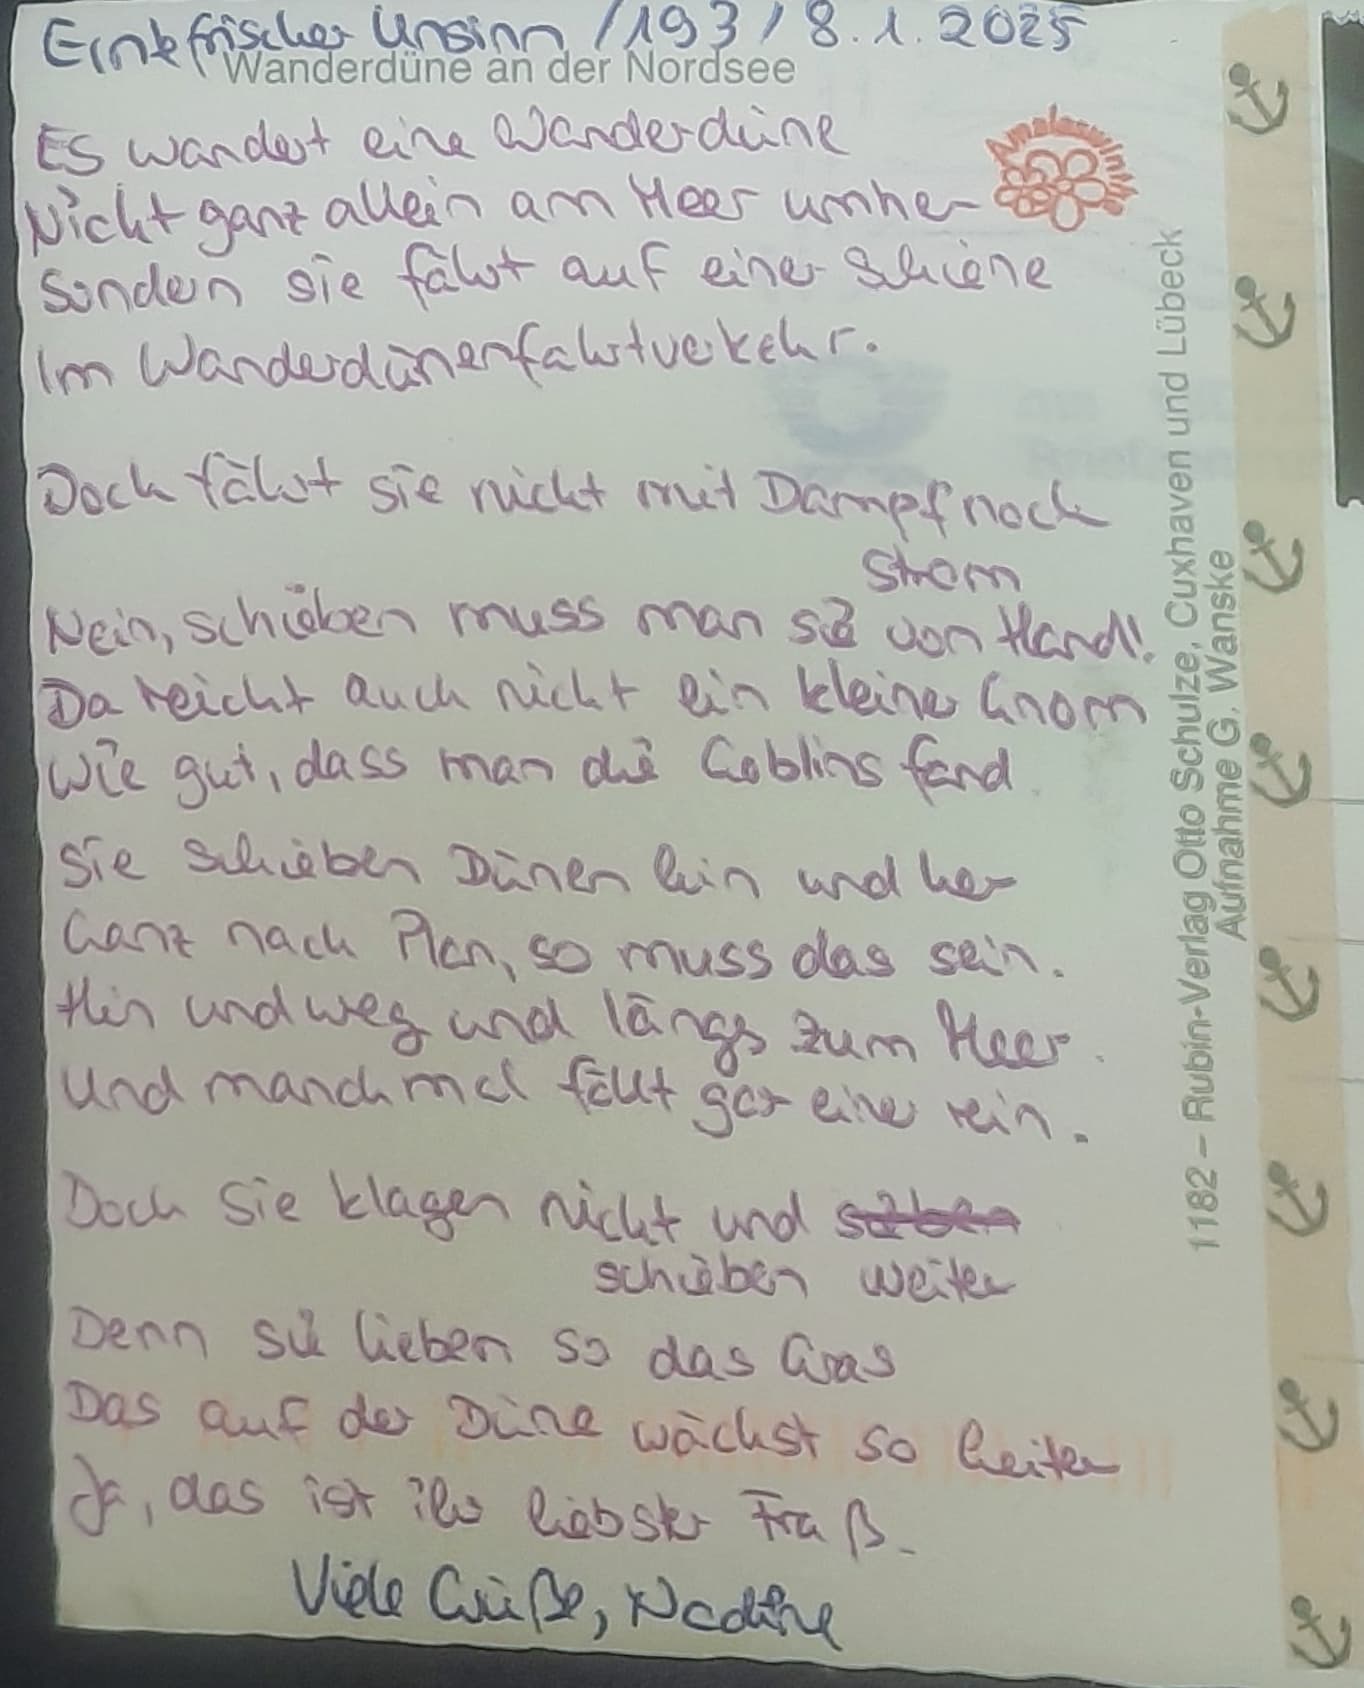 Erntefrischer Unsinn / 193 / 8.1.2025
Wanderdüne an der Nordsee
Es wandert eine Wanderdüne
Nicht ganz allein am Meer umher
Sondern sie fährt auf einer Schiene
Im Wanderdünenfahrtverkehr.
Doch fährt sie nicht mit Dampf noch
Strom
Nein, schieben muss man sie von Hand!
Da reicht auch nicht ein kleiner Gnom
Wie gut, dass man die Goblins fand
Sie schieben Dünen hin und her
Ganz nach Plan, so muss das sein.
Hin und weg und längs zum Meer.
Und manchmal fällt gar einer rein.
Doch sie klagen nicht und
schieben weiter
Denn sie lieben so das Gras
Das auf der Düne wächst so heiter
Ja, das ist ihr liebster Fraß.
Viele Grüße, Nadine
1182 – Rubin-Verlag Otto Schulze, Cuxhaven und Lübeck
Aufnahme G. Wanske